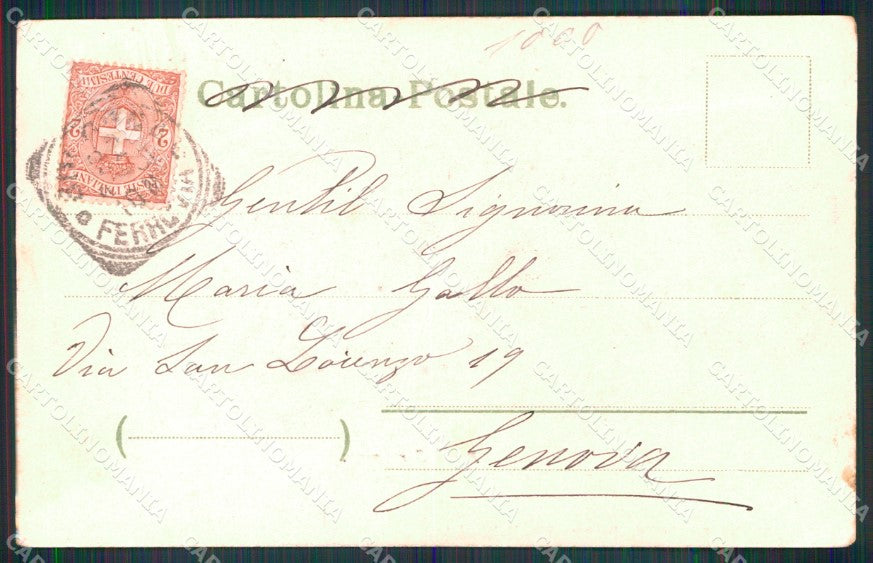 1000
Cartolina Postale.
DUE CENTESIMI
2 2
FERRO
Gentil Signorina
Maria Gallo
Via San Lorenzo 19
Genova
CARTOLINOMANIA